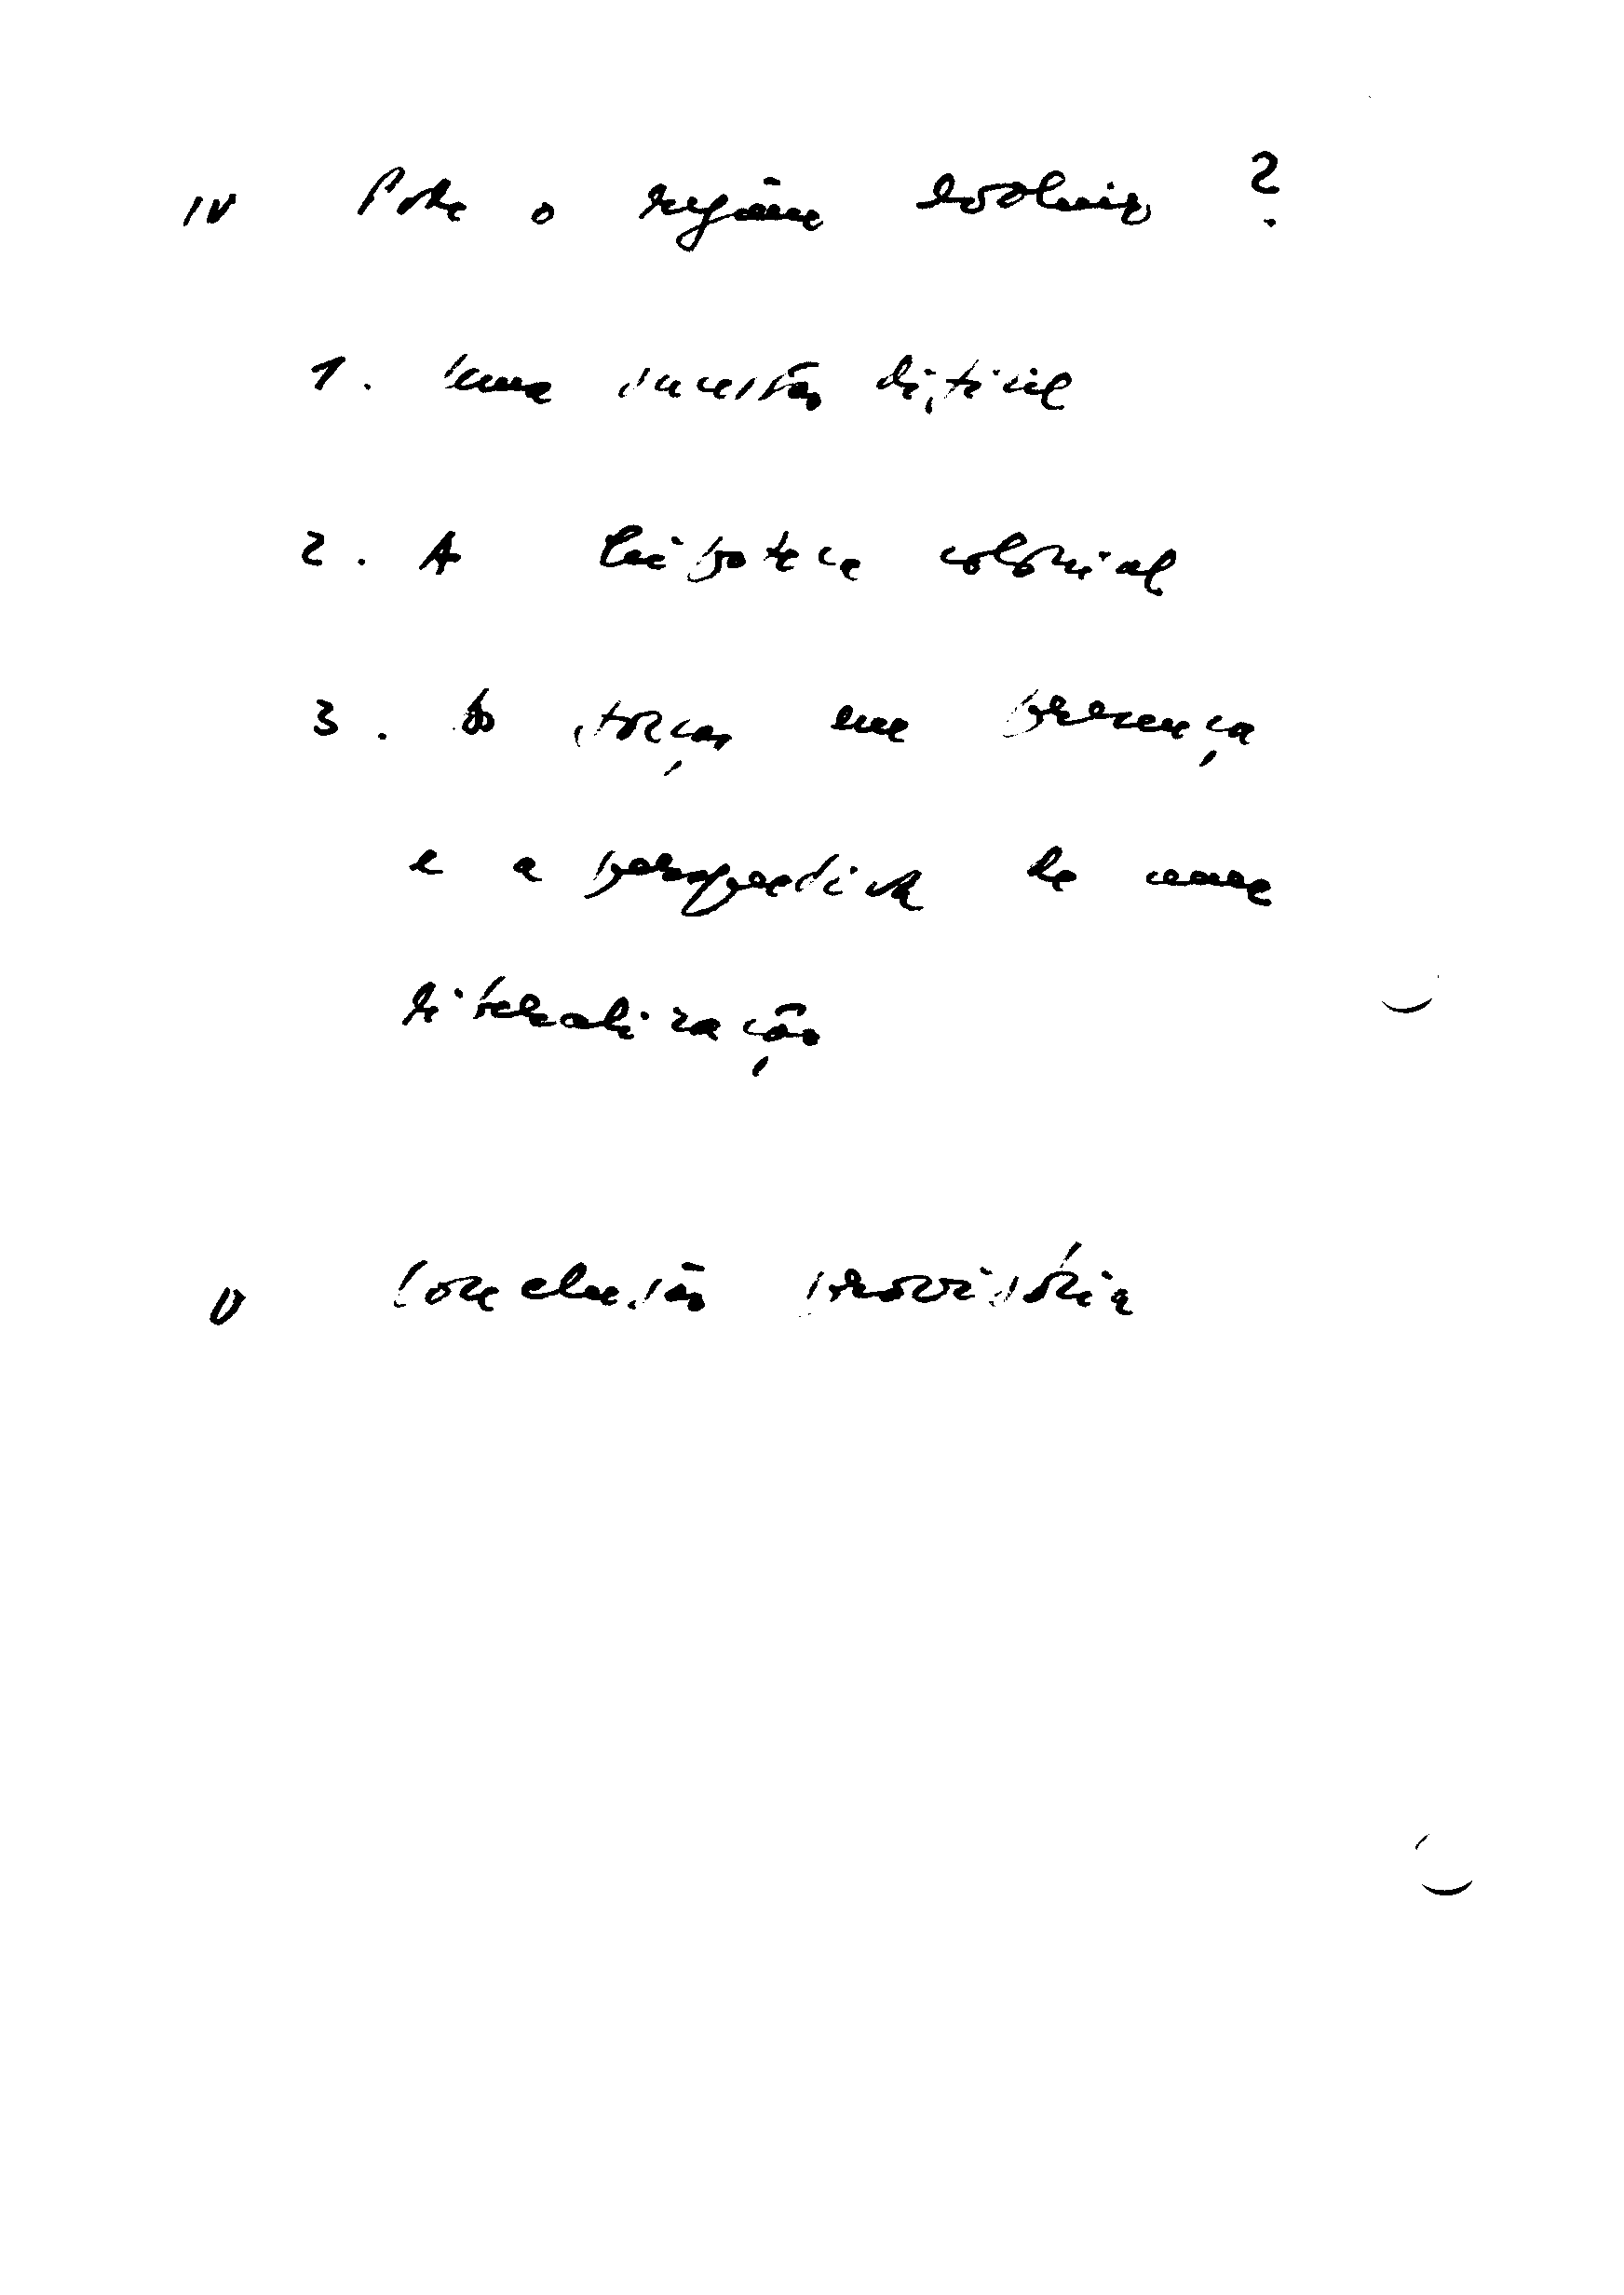 IV Pode o regime evoluir ?
1. Uma sucessão difícil
2. A hipoteca colonial
3. As forças em presença
e a perspectiva de uma
liberalização
V Conclusão provisória